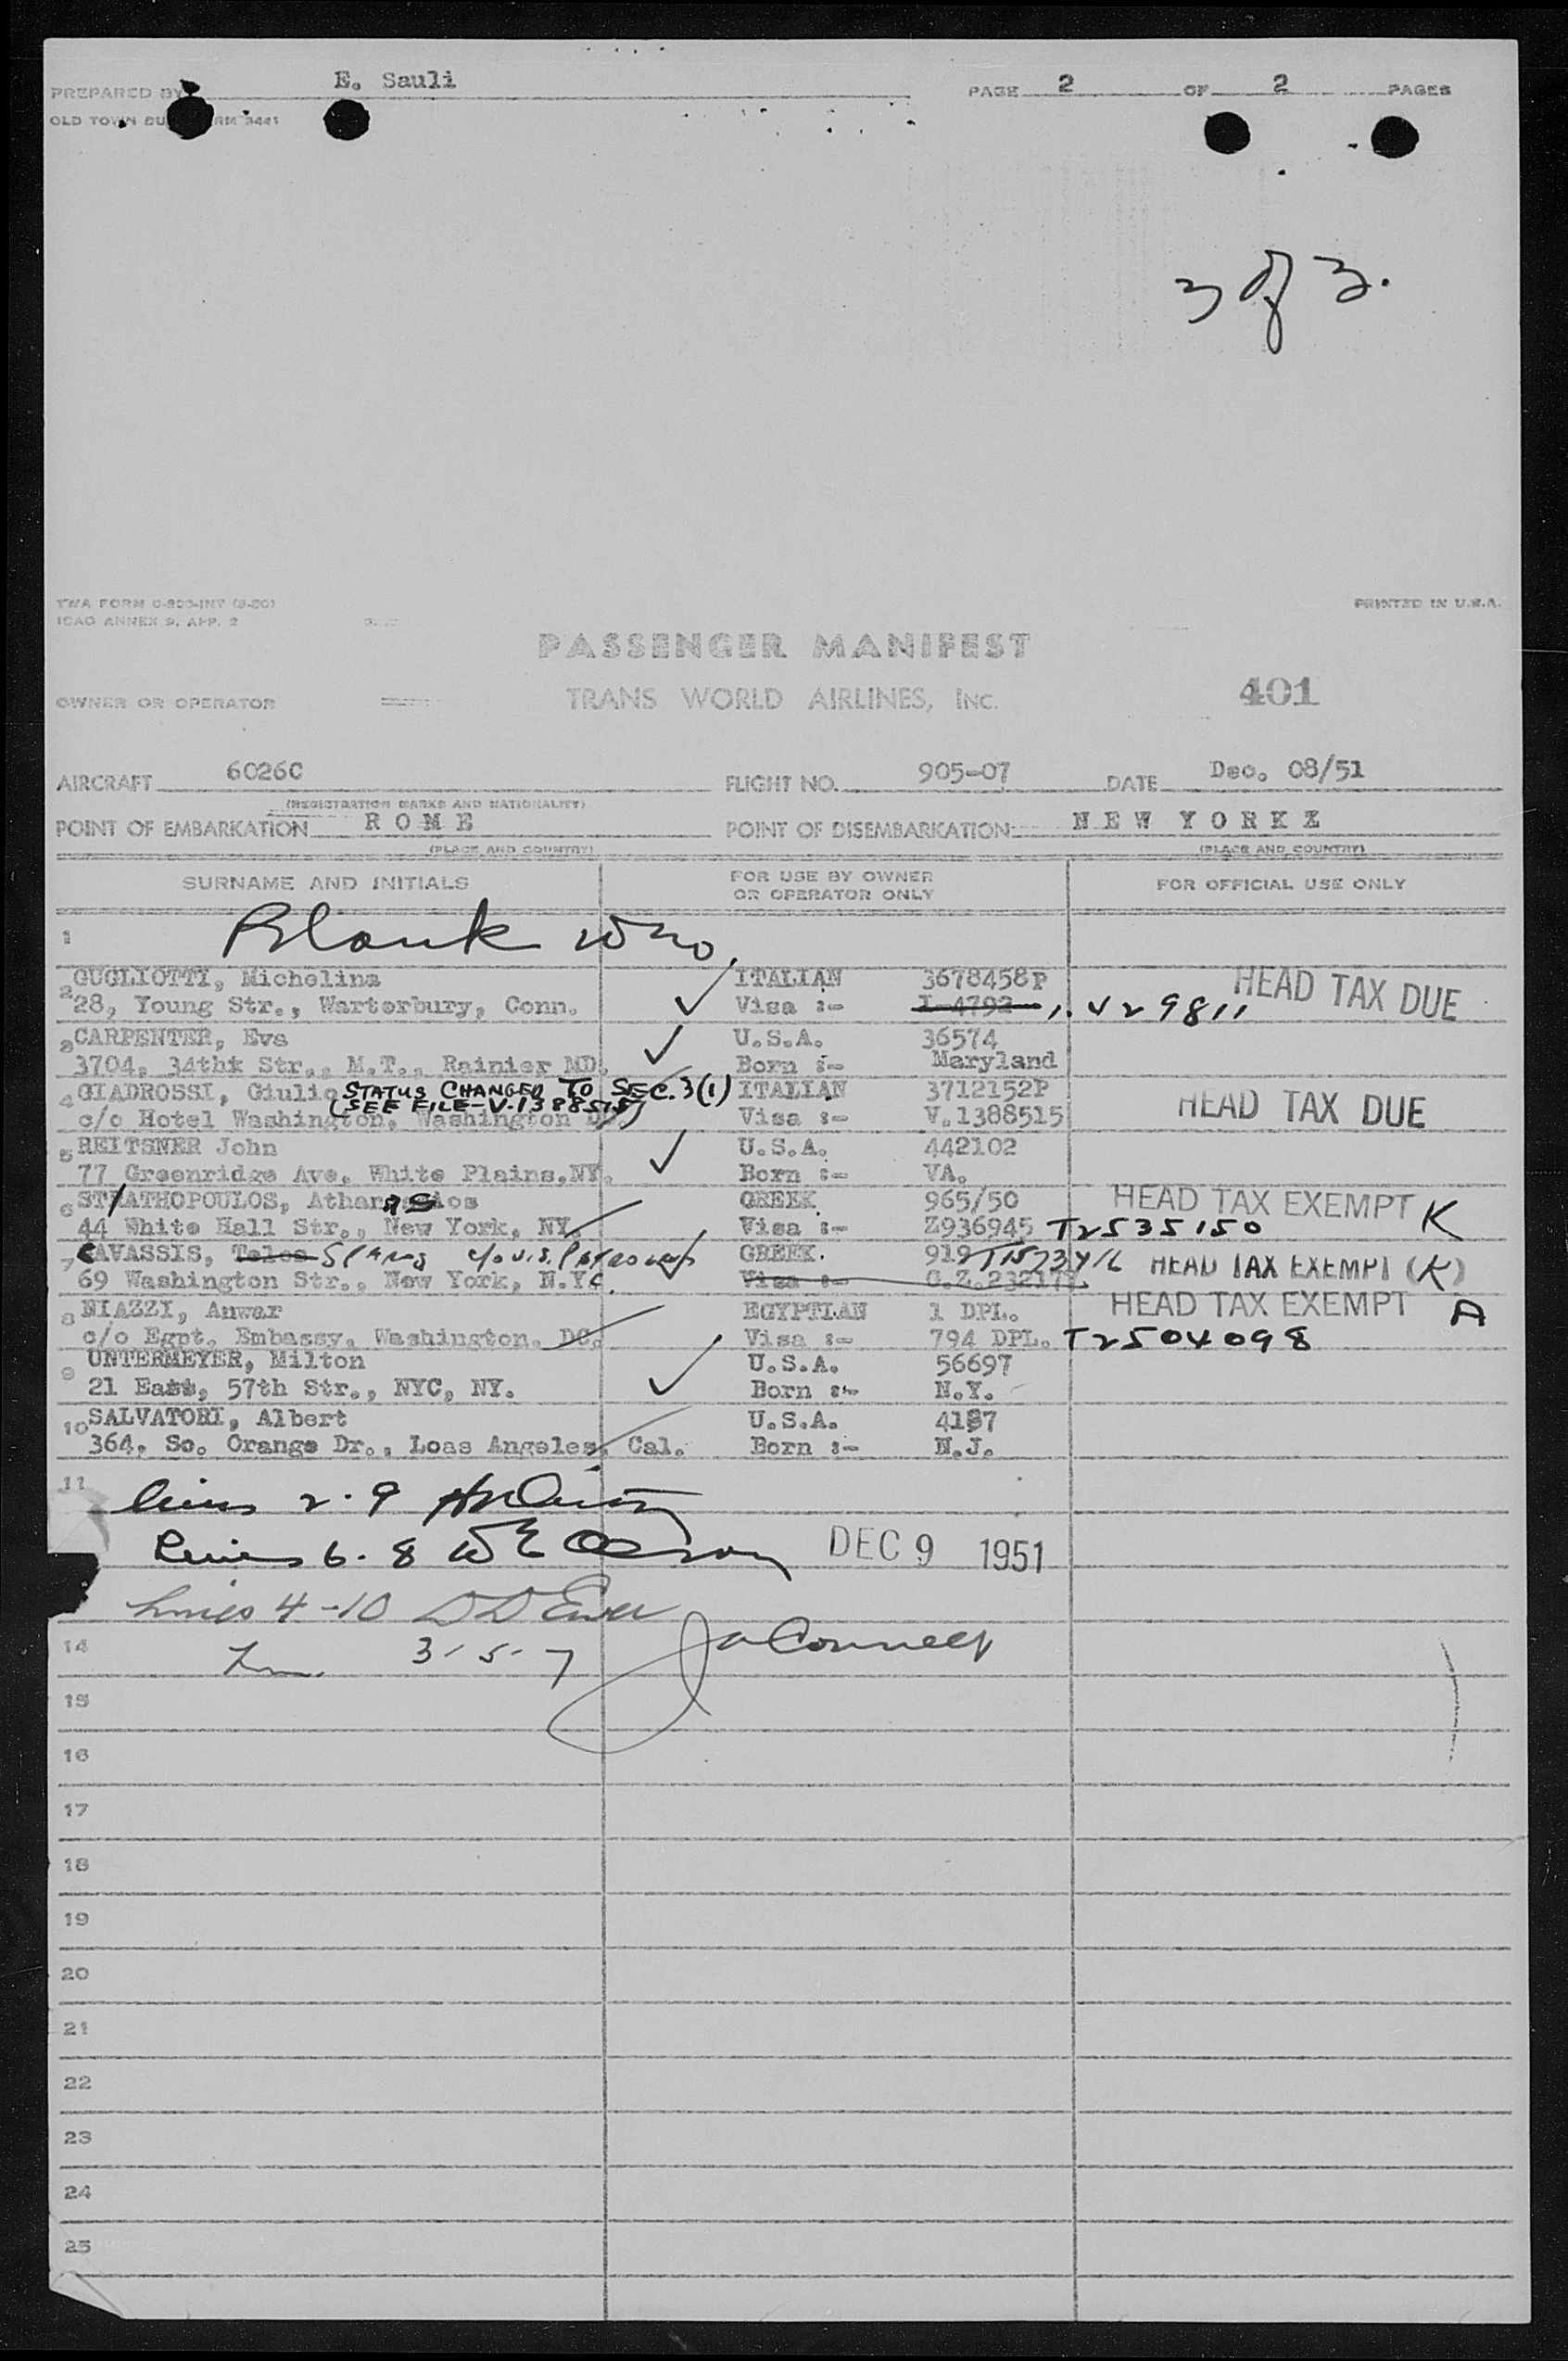 PREPARED BY E. Sauli PAGE 2 OF 2 PAGES
OLD TOWN
3 of 3.
ICAO ANNEX 9, APP. 2 PRINTED IN U.S.A.
PASSENGER MANIFEST
OWNER OR OPERATOR TRANS WORLD AIRLINES, INC. 401
AIRCRAFT 6026C FLIGHT NO. 905-07 DATE Dec. 08/51
(REGISTRATION MARKS AND NATIONALITY)
POINT OF EMBARKATION R O M E POINT OF DISEMBARKATION N E W Y O R K X
(PLACE AND COUNTRY) (PLACE AND COUNTRY)
SURNAME AND INITIALS FOR USE BY OWNER OR OPERATOR ONLY FOR OFFICIAL USE ONLY
1 Blank
2 GUGLIOTTI, Michelina ITALIAN 3678458P HEAD TAX DUE
28, Young Str., Warterbury, Conn. Visa :- I-4792 V29811
3 CARPENTER, Eva U.S.A. 36574
3704, 34thk Str., M.T., Rainier MD. Born :- Maryland
4 GIADROSSI, Giulio STATUS CHANGED TO SEC. 3(1) ITALIAN 3712152P HEAD TAX DUE
(SEE FILE-V-1388515)
c/o Hotel Washington, Washington DC. Visa :- V.1388515
5 REITSNER John U.S.A. 442102
77 Greenridge Ave. White Plains, NY. Born :- VA.
6 STRATHOPOULOS, Athanasios GREEK 965/50 HEAD TAX EXEMPT K
44 White Hall Str., New York, NY. Visa :- Z936945 T2535150
7 CAVASSIS, GREEK. 919 HEAD TAX EXEMPT (K)
69 Washington Str., New York, N.Y. Visa :-
8 NIAZZI, Anwar EGYPTIAN 1 DPL. HEAD TAX EXEMPT A
c/o Egpt. Embassy, Washington. DC. Visa :- 794 DPL. T2504098
9 UNTERMEYER, Milton U.S.A. 56697
21 East, 57th Str., NYC, NY. Born :- N.Y.
10 SALVATORI, Albert U.S.A. 4187
364, So. Orange Dr., Loas Angeles, Cal. Born :- N.J.
11 Lines 2-9
Lines 6-8 DEC 9 1951
Lines 4-10
14 3-5-7
15
16
17
18
19
20
21
22
23
24
25